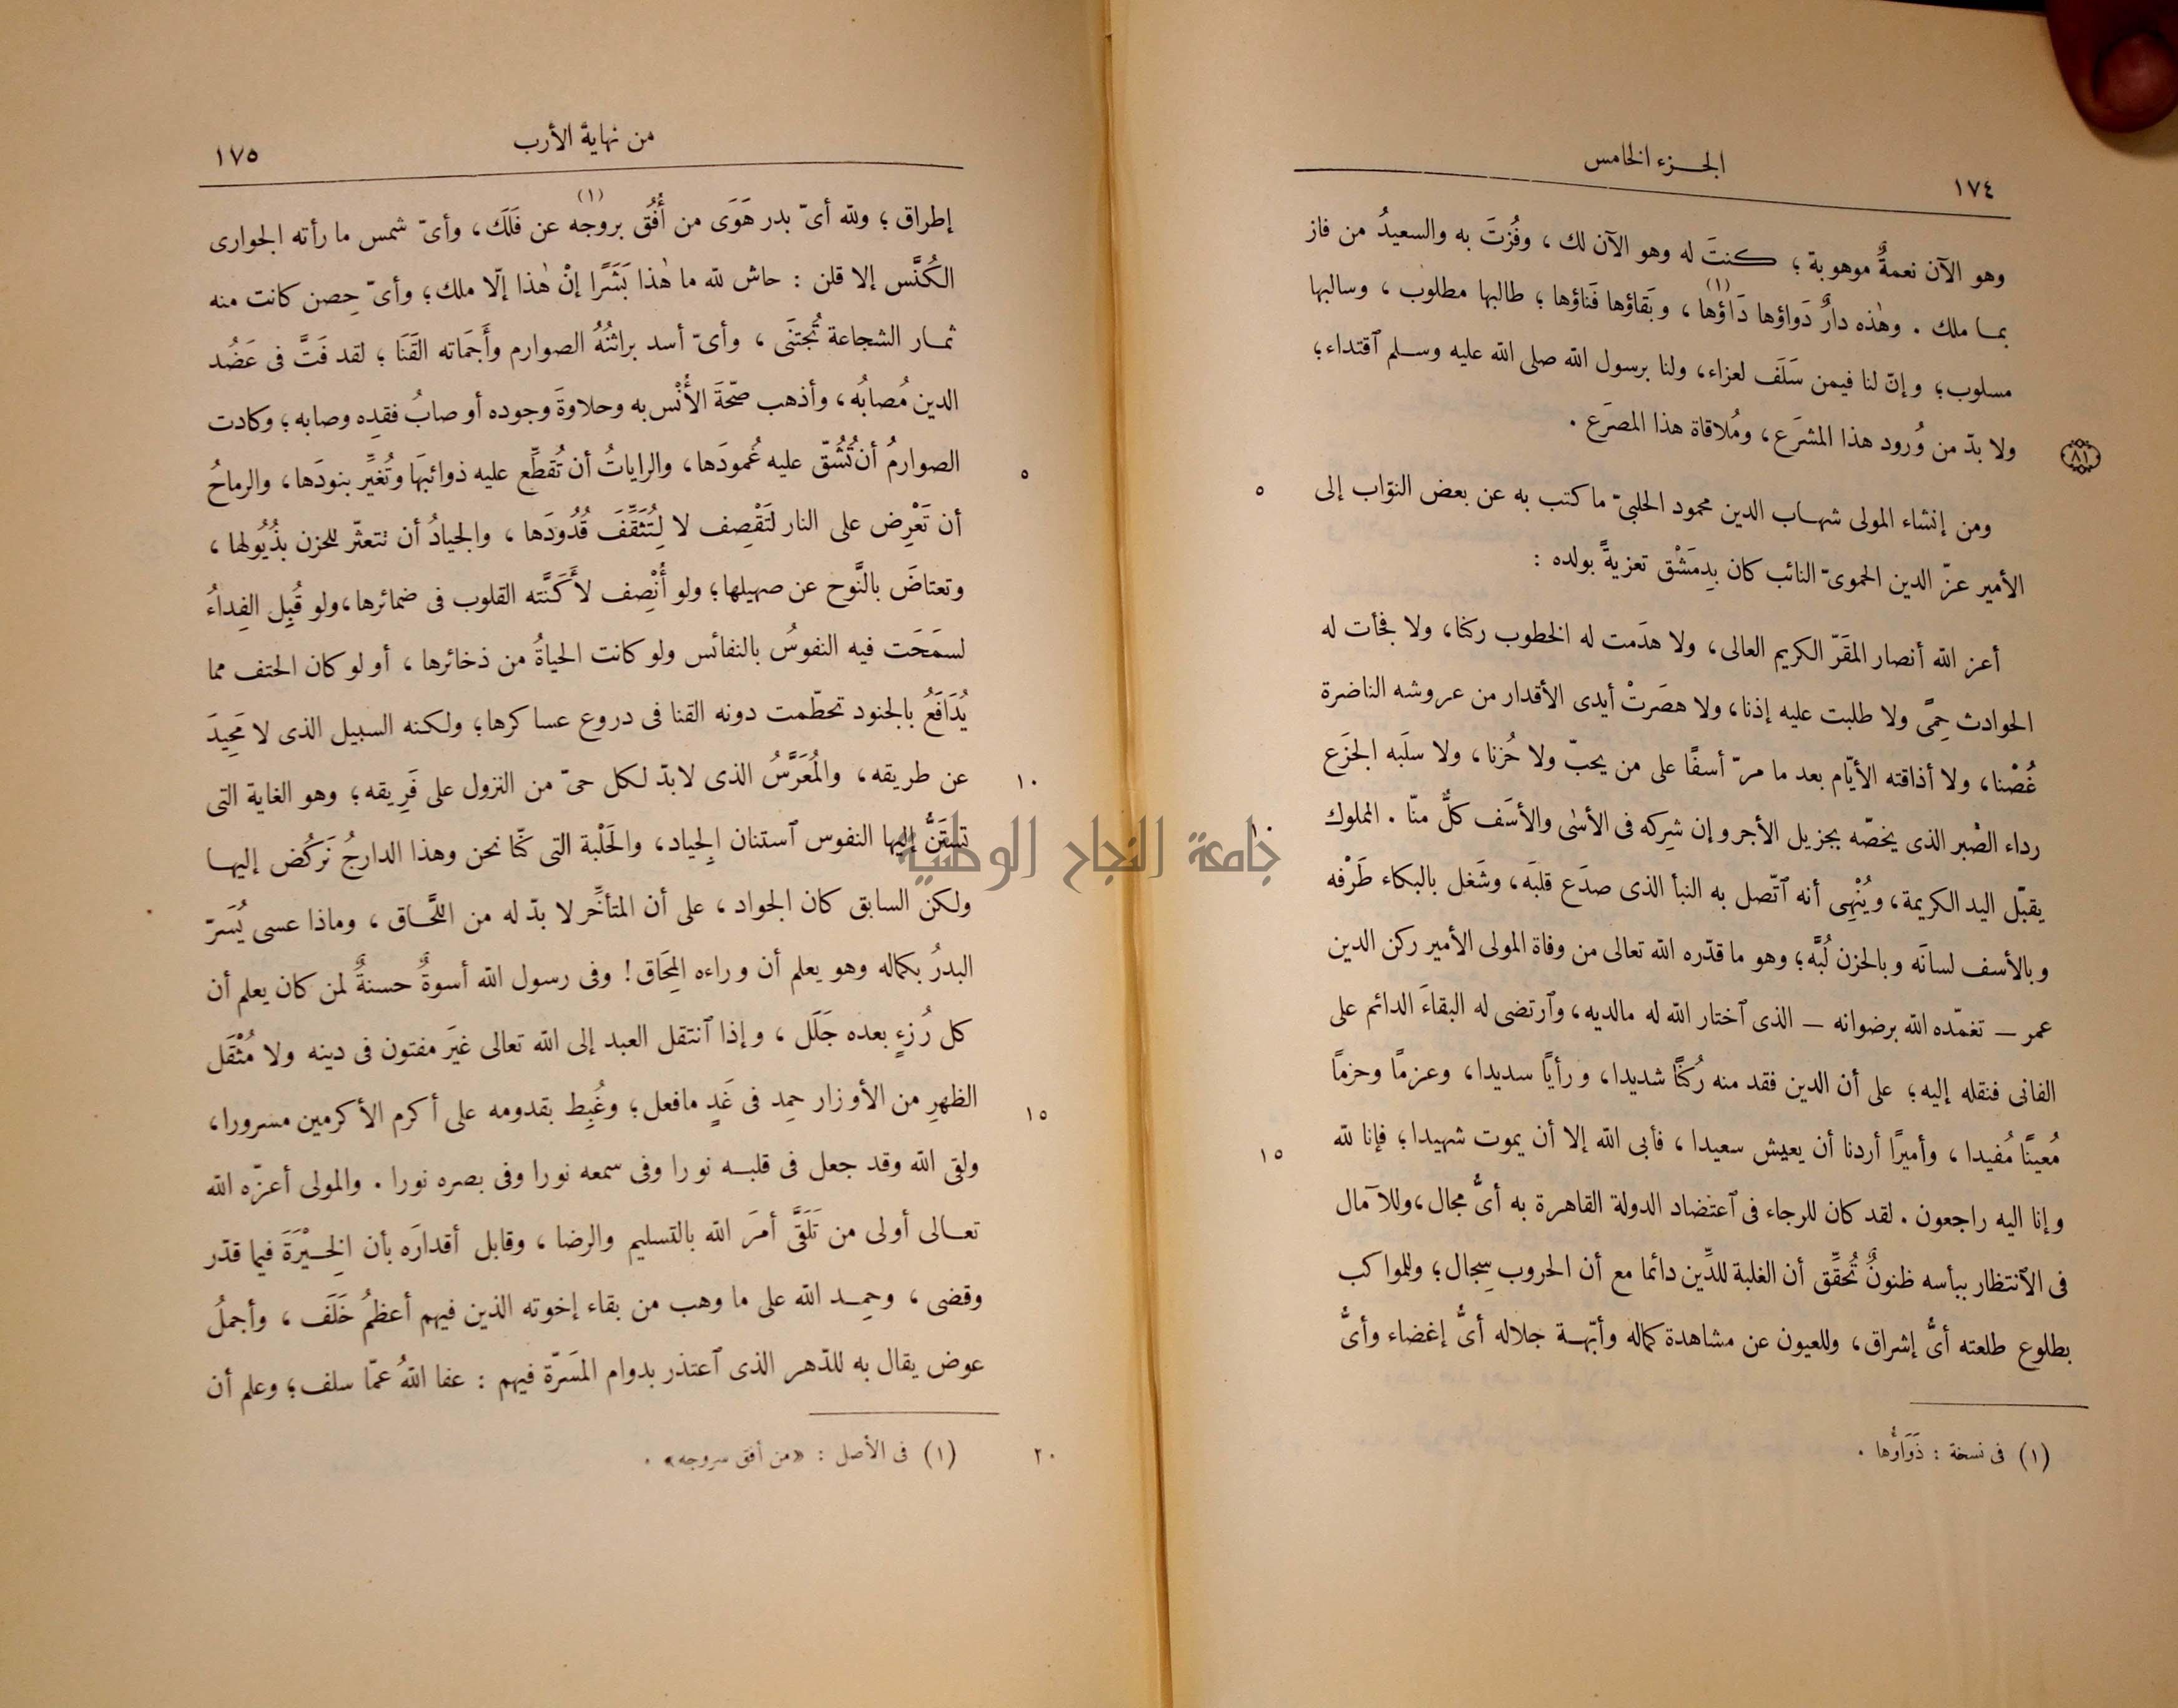 ١٧٤
الجزء الخامس
وهو الآن نعمةٌ موهوبة؛ كنتَ له وهو الآن لك، وفُزتَ به والسعيدُ من فاز
بما ملك. وهٰذه دارٌ دَواؤها دَاؤُها (١)، وبَقاؤها فَناؤها؛ طالبها مطلوب، وسالبها
مسلوب؛ وإنّ لنا فيمن سَلَف لعزاء، ولنا برسول الله صلى الله عليه وسلم ٱقتداء؛
ولا بدّ من وُرود هذا المشرَع، ومُلاقاة هذا المصرَع.
٨١
ومن إنشاء المولى شهاب الدين محمود الحلبيّ ما كتب به عن بعض النوّاب إلى
٥
الأمير عزّ الدين الحموىّ النائب كان بِدِمَشْق تعزيةً بولده:
أعز الله أنصار المقَرّ الكريم العالى، ولا هدَمت له الخطوب ركنا، ولا فجأت له
الحوادث حِمًى ولا طلبت عليه إذنا، ولا هصَرتْ أيدى الأقدار من عروشه الناضرة
غُصْنا، ولا أذاقته الأيّام بعد ما مرّ أسفًا على من يحبّ ولا حُزنا، ولا سلَبه الجزَع
رداء الصّبر الذى يخصّه بجزيل الأجر وإن شرِكه فى الأسٰى والأسَف كلٌّ منّا. المملوك
١٠
يقبّل اليد الكريمة، ويُنْهِى أنه ٱتّصل به النبأ الذى صدَع قلبَه، وشَغل بالبكاء طَرْفه
وبالأسف لسانَه وبالحزن لُبَّه؛ وهو ما قدّره الله تعالى من وفاة المولى الأمير ركن الدين
عمر — تغمّده الله برضوانه — الذى ٱختار الله له مالديه، وٱرتضى له البقاءَ الدائم على
الفانى فنقله إليه؛ على أن الدين فقد منه رُكنًا شديدا، ورأيًا سديدا، وعزمًا وحزمًا
مُعينًا مُفيدا، وأميرًا أردنا أن يعيش سعيدا، فأبى الله إلا أن يموت شهيدا؛ فإنا لله
١٥
وإنا اليه راجعون. لقد كان للرجاء فى ٱعتضاد الدولة القاهرة به أىُّ مجال، وللآمال
فى الٱنتظار ببأسه ظنونٌ تُحقِّق أن الغلبة للدِّين دائما مع أن الحروب سِجال؛ وللمواكب
بطلوع طلعته أىُّ إشراق، وللعيون عن مشاهدة كماله وأبّهة جلاله أىُّ إغضاء وأىُّ
(١) فى نسخة: ذَوَاؤُها.
من نهاية الأرب
١٧٥
إطراق؛ ولله أىّ بدر هَوَى من أُفُق بروجه (١) عن فَلَك، وأىّ شمس ما رأته الجوارى
الكُنَّس إلا قلن: حاش لله ما هٰذا بَشَرًا إنْ هٰذا إلّا ملك؛ وأىّ حِصن كانت منه
ثمار الشجاعة تُجتنَى، وأىّ أسد براثنُهُ الصوارم وأَجَماته القَنَا؛ لقد فَتَّ فى عَضُد
الدين مُصابُه، وأذهب صحّةَ الأُنْس به وحلاوةَ وجوده أوصابُ فقدِه وصابه؛ وكادت
الصوارمُ أن تُشُقّ عليه غُمودَها، والراياتُ أن تُقطِّع عليه ذوائبَها وتُغيِّر بنودَها، والرماحُ
٥
أن تَعْرِض على النار لتَقْصِف لا لِتُثقِّفَ قُدُودَها، والجيادُ أن تتعثّر للحزن بذُيُولها،
وتعتاضَ بالنَّوح عن صهيلها؛ ولو أُنْصِف لأَكَنَّته القلوب فى ضمائرها، ولو قُبِل الفِداءُ
لسمَحَت فيه النفوسُ بالنفائس ولو كانت الحياةُ من ذخائرها، أو لو كان الحتف مما
يُدَافَعُ بالجنود تحطّمت دونه القنا فى دروع عساكرها؛ ولكنه السبيل الذى لا مَحِيدَ
عن طريقه، والمُعَرَّسُ الذى لابدّ لكل حىّ من النزول على فَرِيقه؛ وهو الغاية التى
١٠
تستَنُّ إليها النفوس ٱستنان الجِياد، والحَلْبة التى كنّا نحن وهذا الدارجُ نَركُض إليها
ولكن السابق كان الجواد، على أن المتأخِّر لا بدّ له من اللَّحَاق، وماذا عسى يُسَرّ
البدرُ بكماله وهو يعلم أن وراءه المِحَاق! وفى رسول الله أسوةٌ حسنةٌ لمن كان يعلم أن
كل رُزءٍ بعده جَلَل، وإذا ٱنتقل العبد إلى الله تعالى غيَر مفتون فى دينه ولا مُثْقَل
الظهرِ من الأوزار حمِد فى غَدٍ مافعل؛ وغُبِط بقدومه على أكرم الأكرمين مسرورا،
١٥
ولقى الله وقد جعل فى قلبه نورا وفى سمعه نورا وفى بصره نورا. والمولى أعزّه الله
تعالى أولى من تَلَقَّى أمرَ الله بالتسليم والرضا، وقابل أقدارَه بأن الخِيْرَةَ فيما قدّر
وقضى، وحمِد الله على ما وهب من بقاء إخوته الذين فيهم أعظمُ خَلَف، وأجملُ
عوض يقال به للدّهر الذى ٱعتذر بدوام المسَرّة فيهم: عفا اللهُ عمّا سلف؛ وعلم أن
(١) فى الأصل: «من أفق سروجه».
٢٠
جامعة النجاح الوطنية